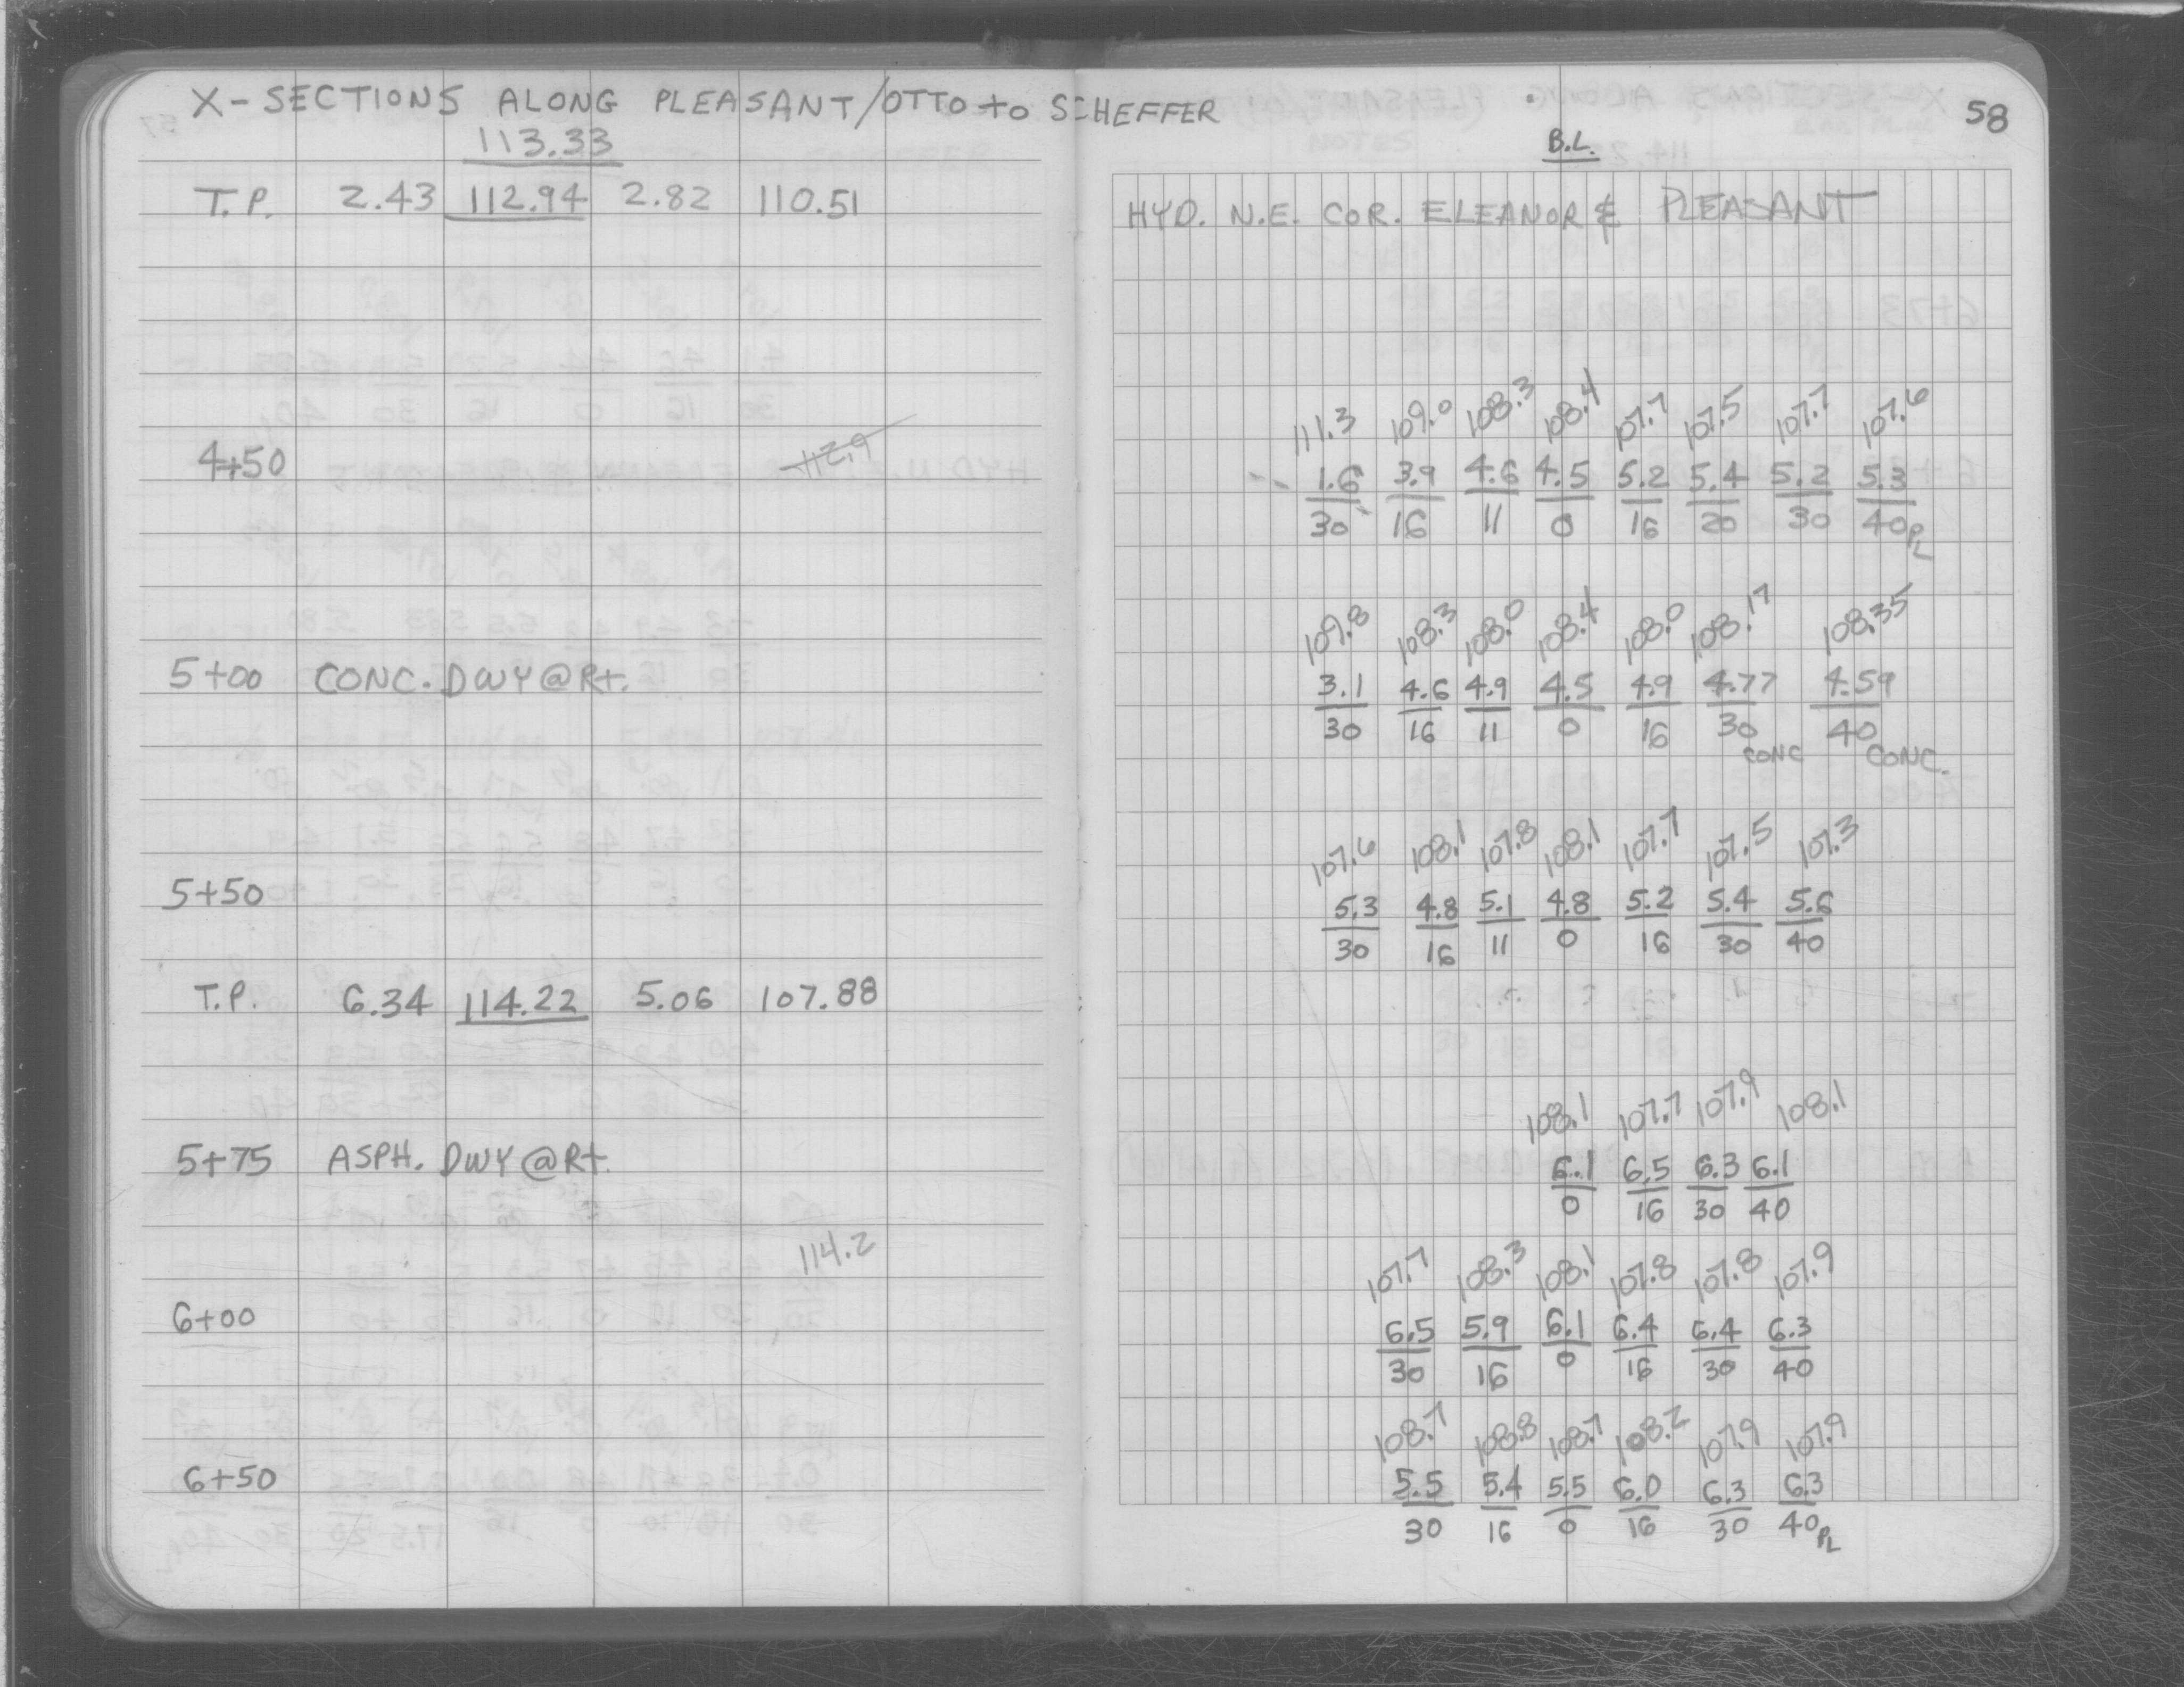 X-SECTIONS ALONG PLEASANT/OTTO to SCHEFFER
58
113.33
B.L.
T.P. 2.43 112.94 2.82 110.51
HYD. N.E. COR. ELEANOR & PLEASANT
111.3 109.0 108.3 108.4 107.7 107.5 107.7 107.6
4+50 112.9 1.6 3.9 4.6 4.5 5.2 5.4 5.2 5.3
30 16 11 0 16 20 30 40 PL
109.8 108.3 108.0 108.4 108.0 108.17 108.35
5+00 CONC. DWY @ Rt. 3.1 4.6 4.9 4.5 4.9 4.77 4.59
30 16 11 0 16 30 40
CONC CONC.
107.6 108.1 107.8 108.1 107.7 107.5 107.3
5+50 5.3 4.8 5.1 4.8 5.2 5.4 5.6
30 16 11 0 16 30 40
T.P. 6.34 114.22 5.06 107.88
108.1 107.7 107.9 108.1
5+75 ASPH. DWY @ Rt. 6.1 6.5 6.3 6.1
0 16 30 40
114.2
107.7 108.3 108.1 107.8 107.8 107.9
6+00 6.5 5.9 6.1 6.4 6.4 6.3
30 16 0 16 30 40
108.7 108.8 108.7 108.2 107.9 107.9
6+50 5.5 5.4 5.5 6.0 6.3 6.3
30 16 0 16 30 40 PL